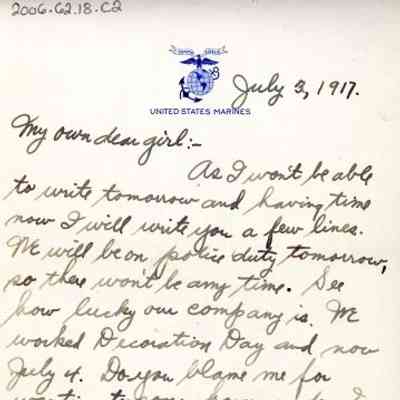 2006.62.18.C2
July 3, 1917.
UNITED STATES MARINES
My own dear girl:-
As I won't be able
to write tomorrow and having time
now I will write you a few lines.
We will be on police duty tomorrow,
so there won't be any time. See
how lucky our company is. We
worked Decoration Day and now
July 4. Do you blame me for